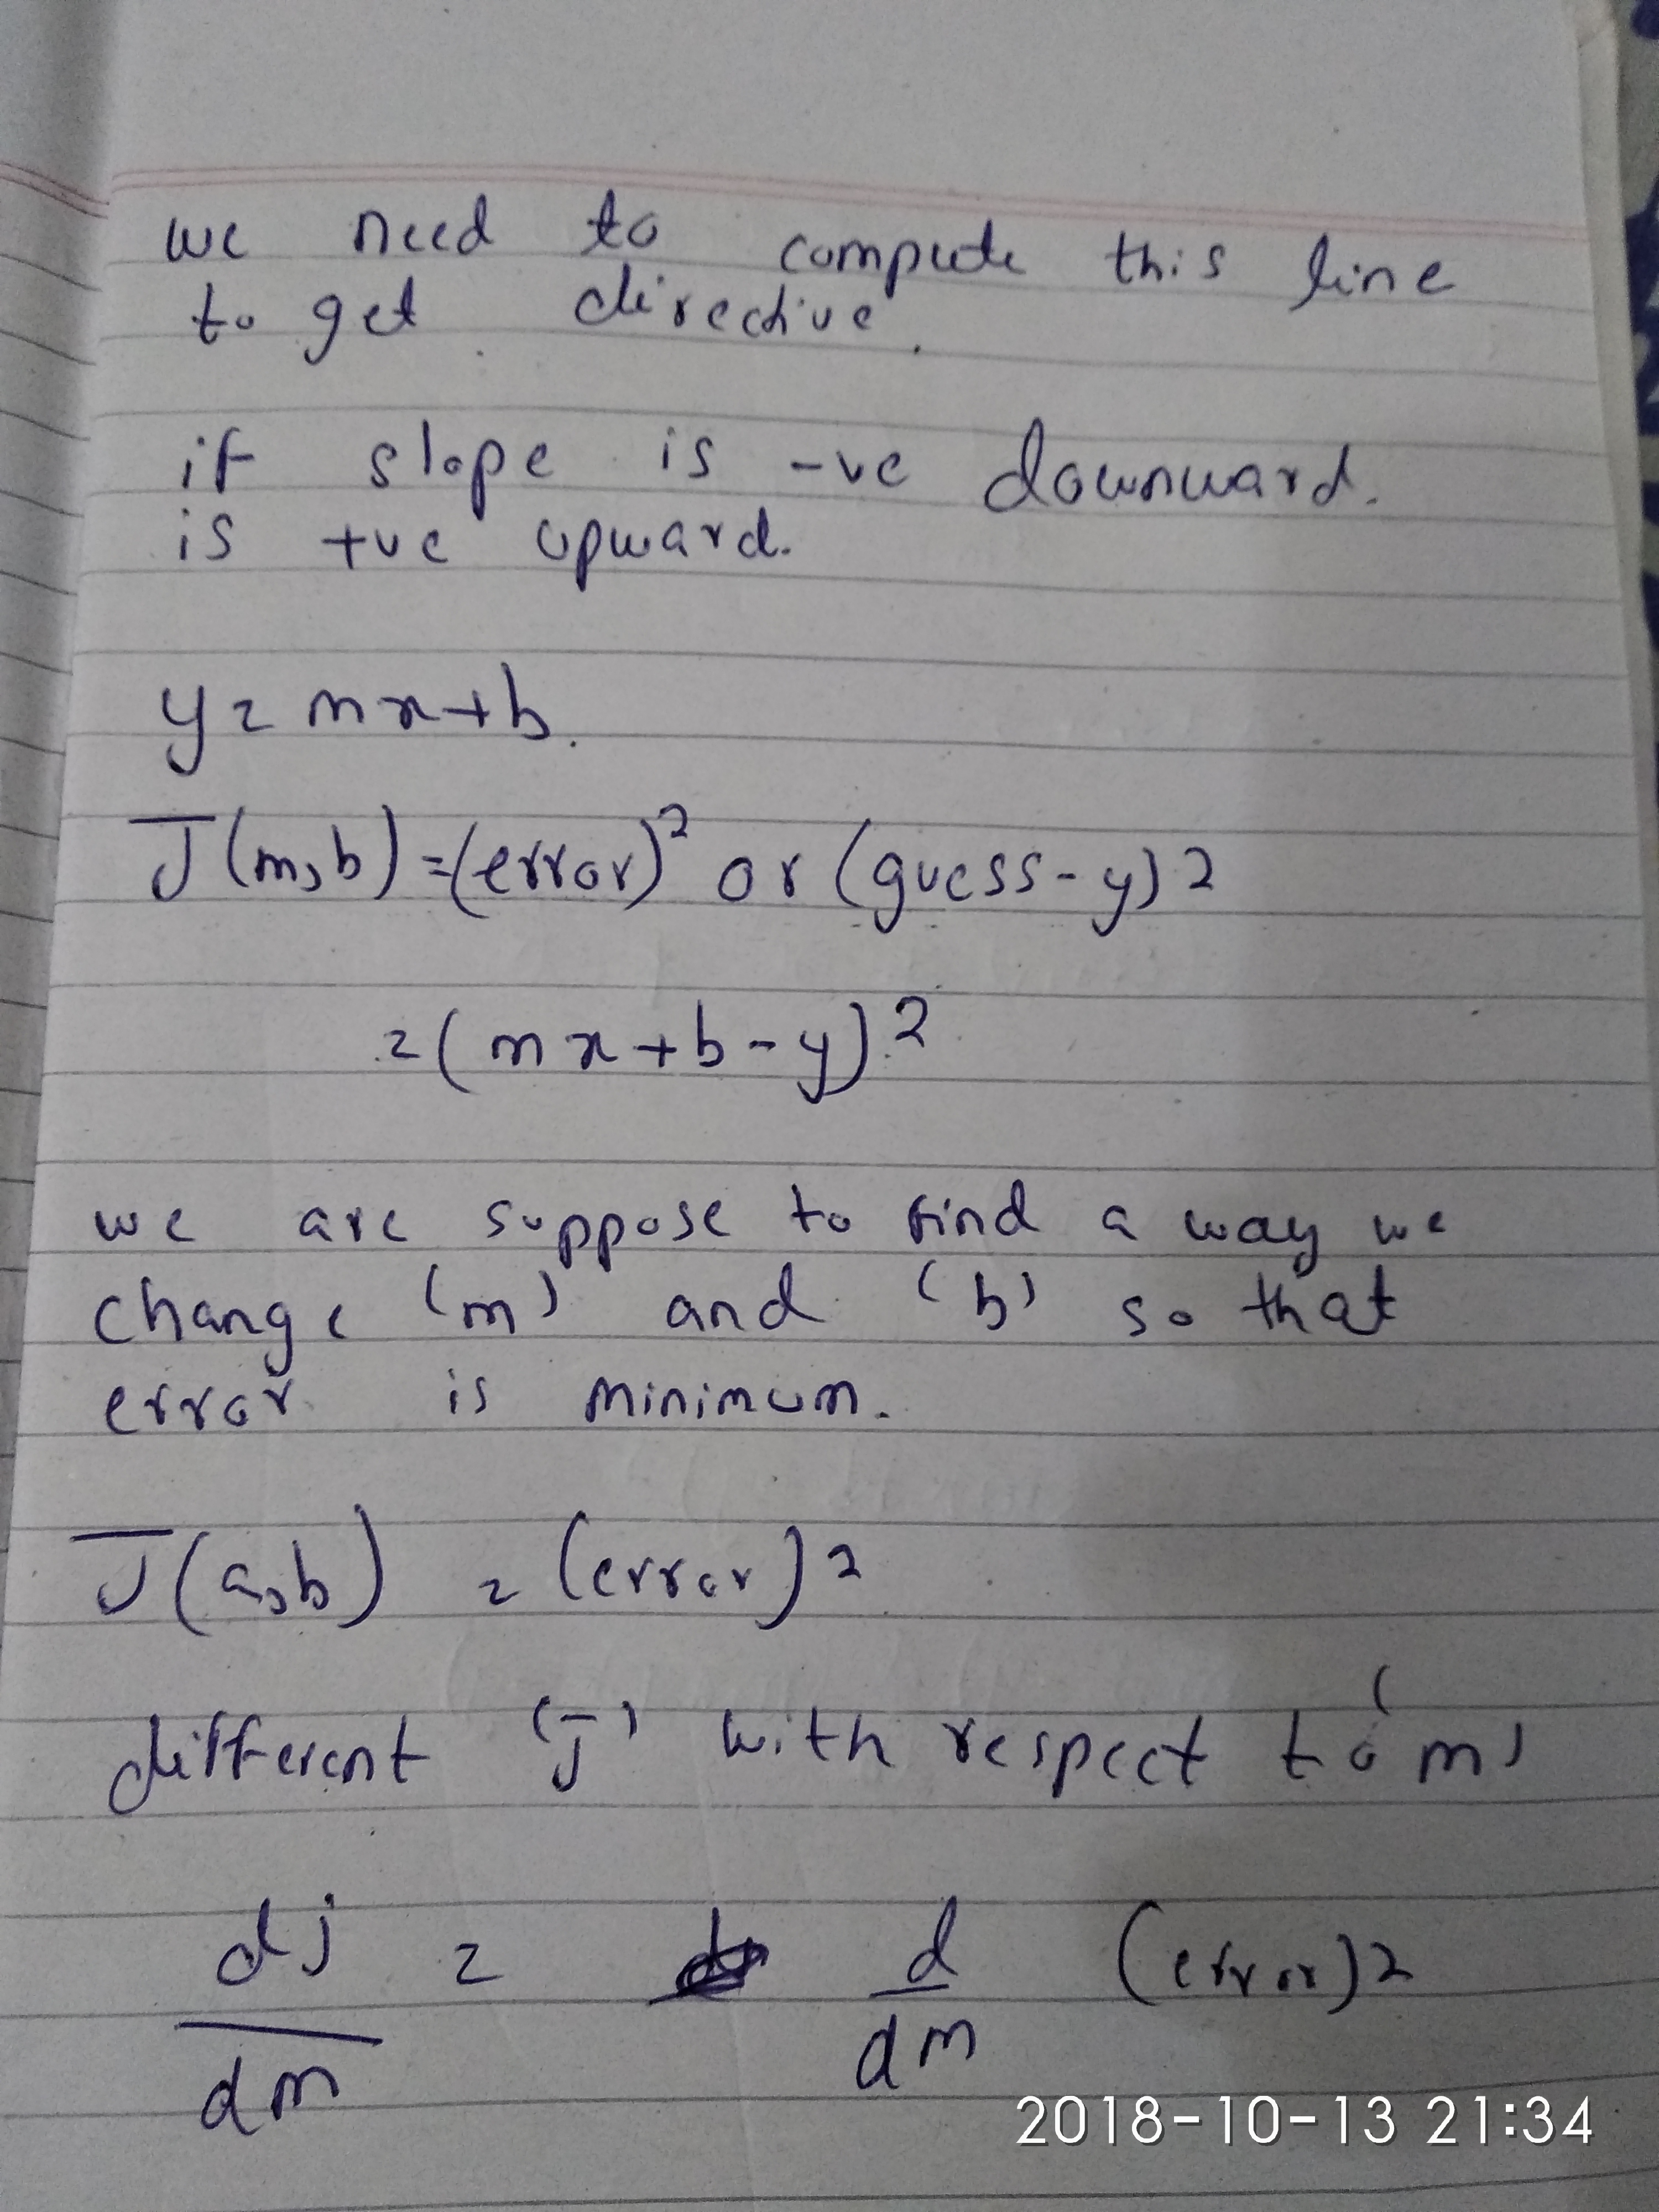 we need to compute this line
to get directive.
if slope is -ve downward.
is +ve upward.
y = mx+b.
J(m,b) = (error)² or (guess-y)²
= (mx+b-y)²
we are suppose to find a way we
change (m) and (b) so that
error is minimum.
J(a,b) = (error)²
different (J) with respect to (m)
dj/dm = d/dm (error)²
2018-10-13 21:34